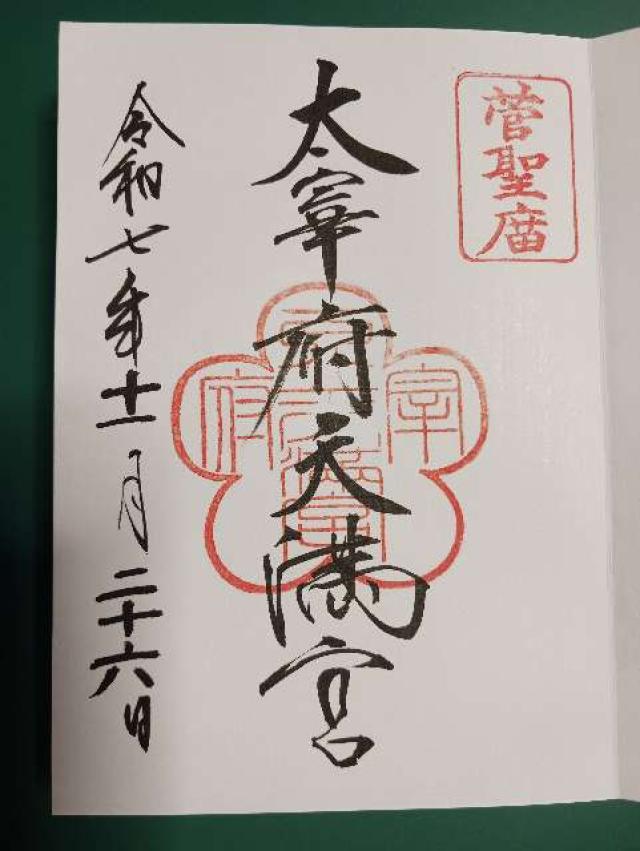 菅聖庿
太宰府天満宮
令和七年十一月二十六日